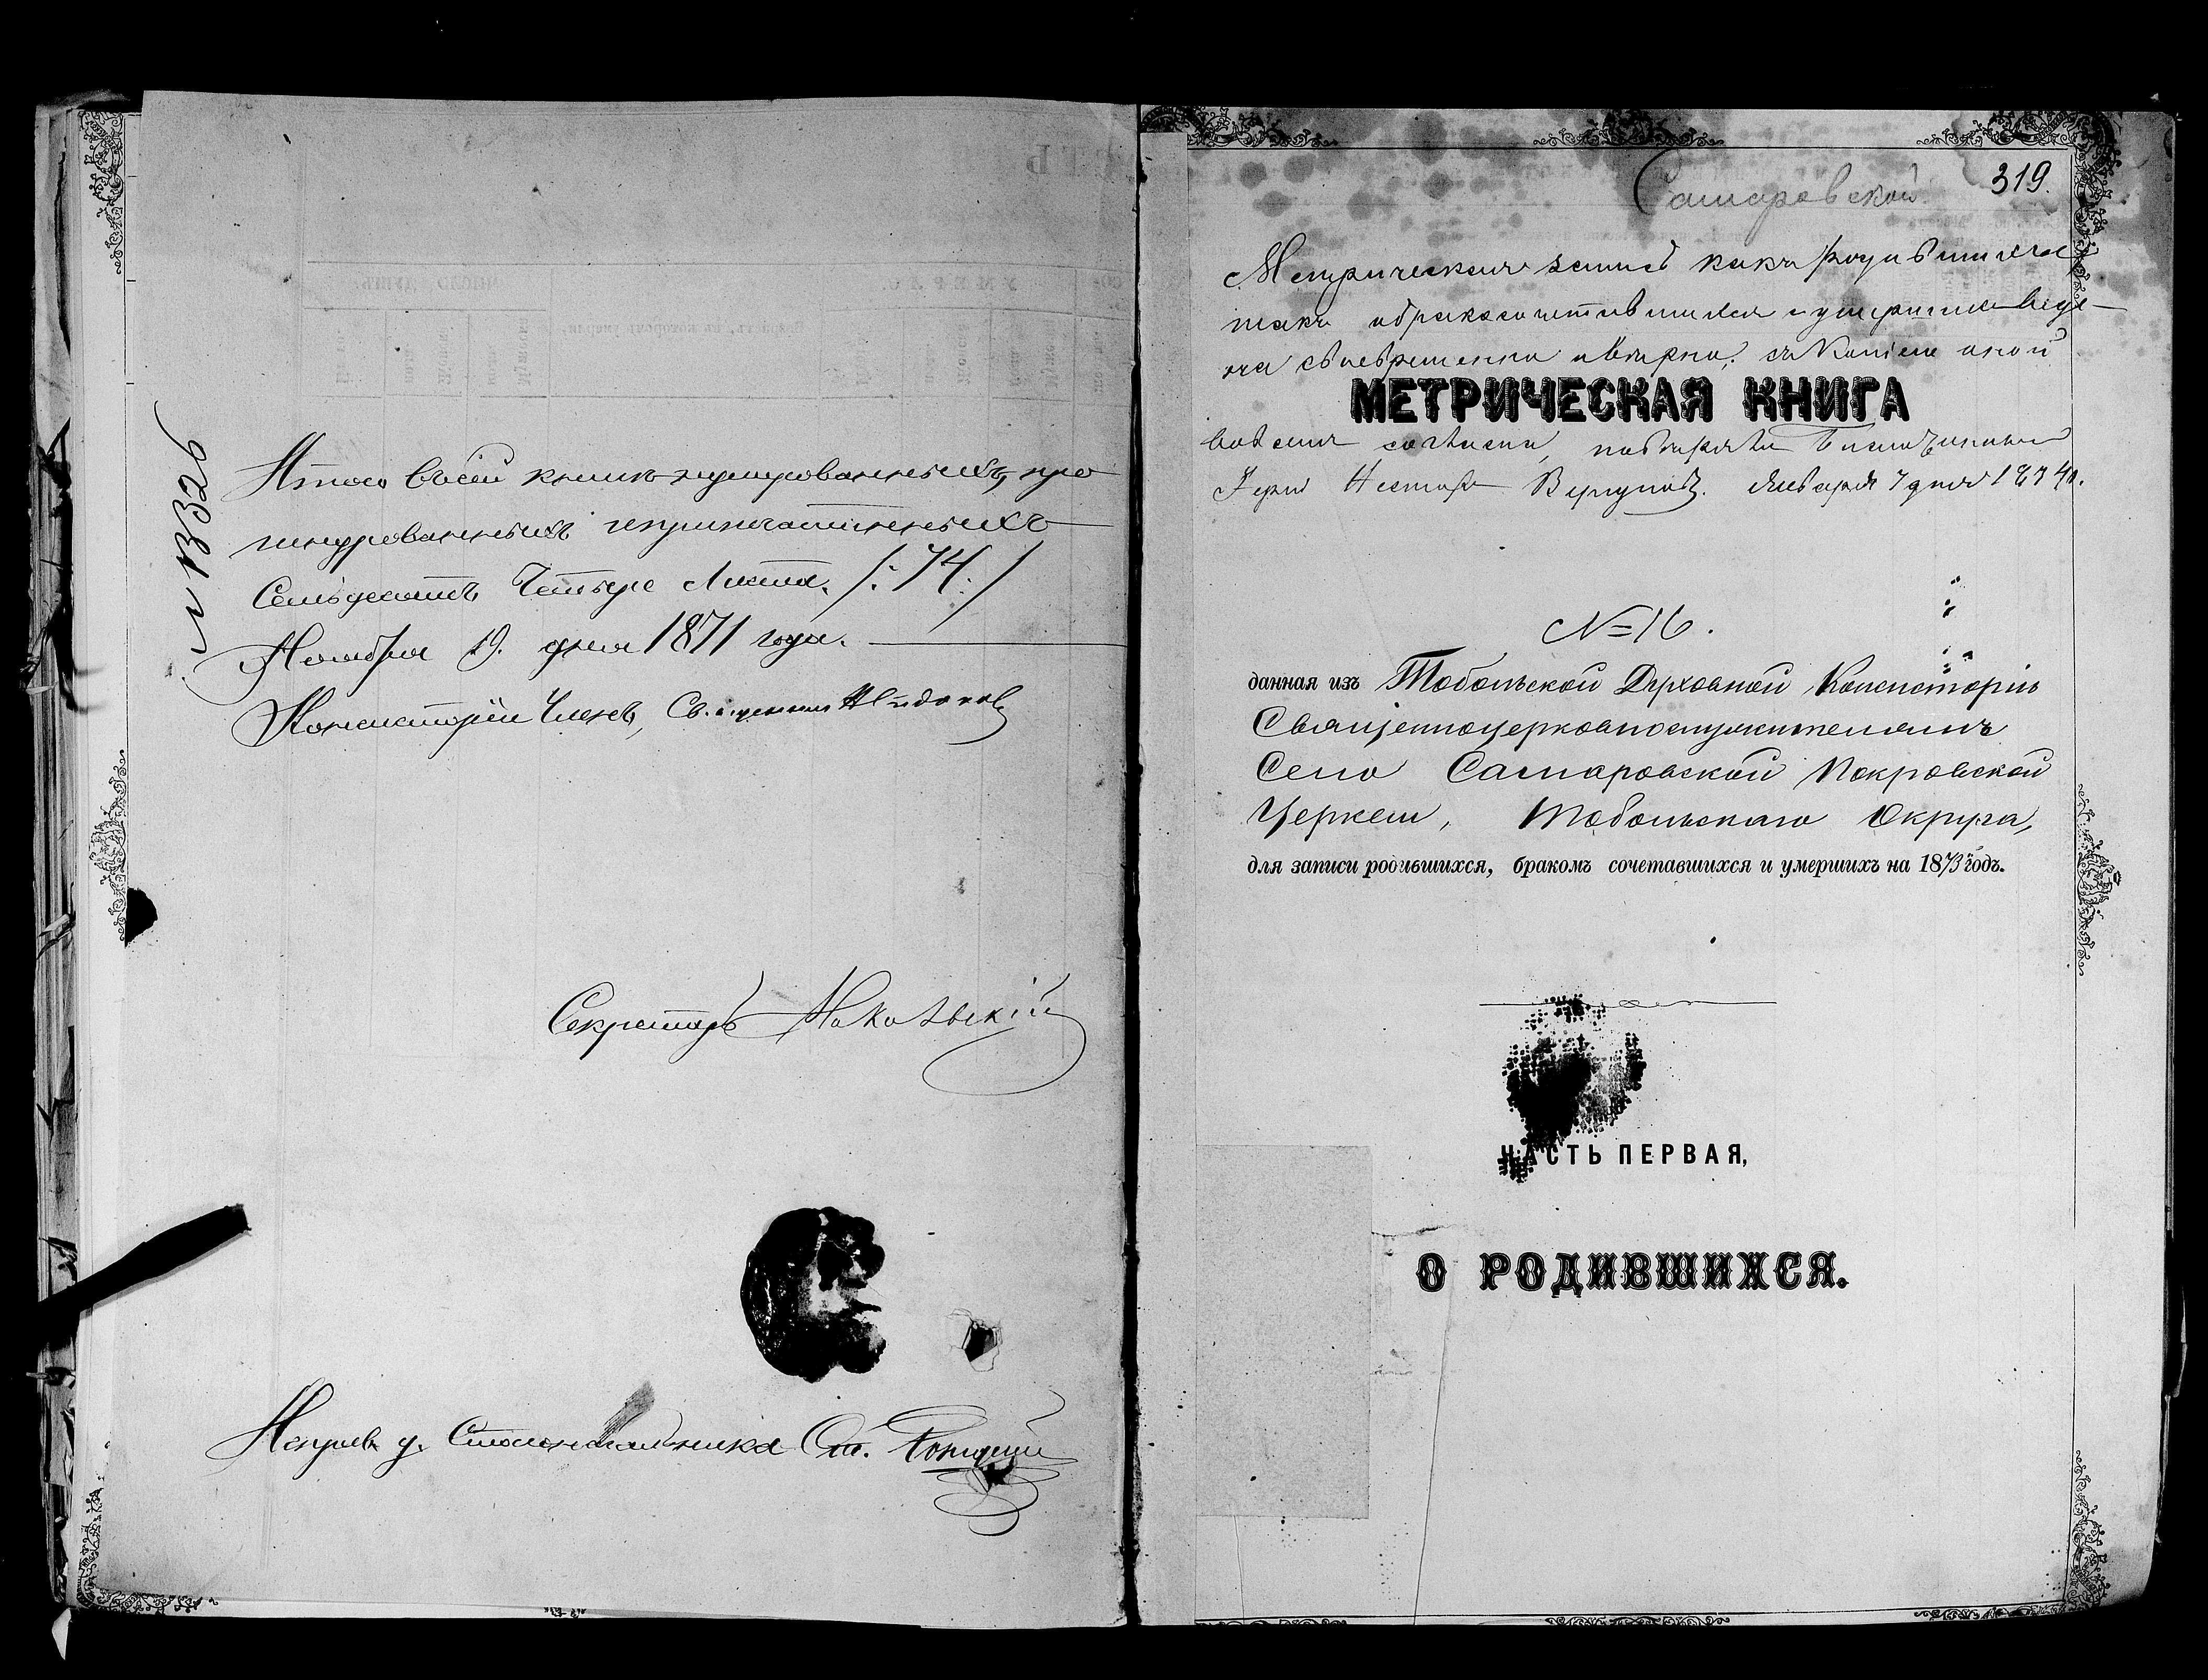 № 13326
Итого въ сей книгѣ нумерованныхъ, про
шнурованныхъ и припечатанныхъ
Семьдесятъ Четыре Листа. /: 74. /
Ноября 19. дня 1871 года.
Консисторіи Членъ, Священникъ
Секретарь
У М Е Р Л О.
ЧИСЛО ДУШЪ.
Исправ. д. Столоначальника
319.
Самаровской
Метрическая запись какъ родившихся
такъ и бракосочетавшихся и умершихъ веде-
на своевременно и вѣрно; съ копіею оной
МЕТРИЧЕСКАЯ КНИГА
согласна, повѣрялъ Благочинный
Іерей Нестор Вергуновъ. Января 7 дня 1874 г.
№ 16.
данная изъ Тобольской Духовной Консисторіи
Священноцерковнослужителямъ
Село Самаровской Покровской
Церкви, Тобольскаго Округа,
для записи родившихся, бракомъ сочетавшихся и умершихъ на 1873 годъ.
ЧАСТЬ ПЕРВАЯ,
О РОДИВШИХСЯ.